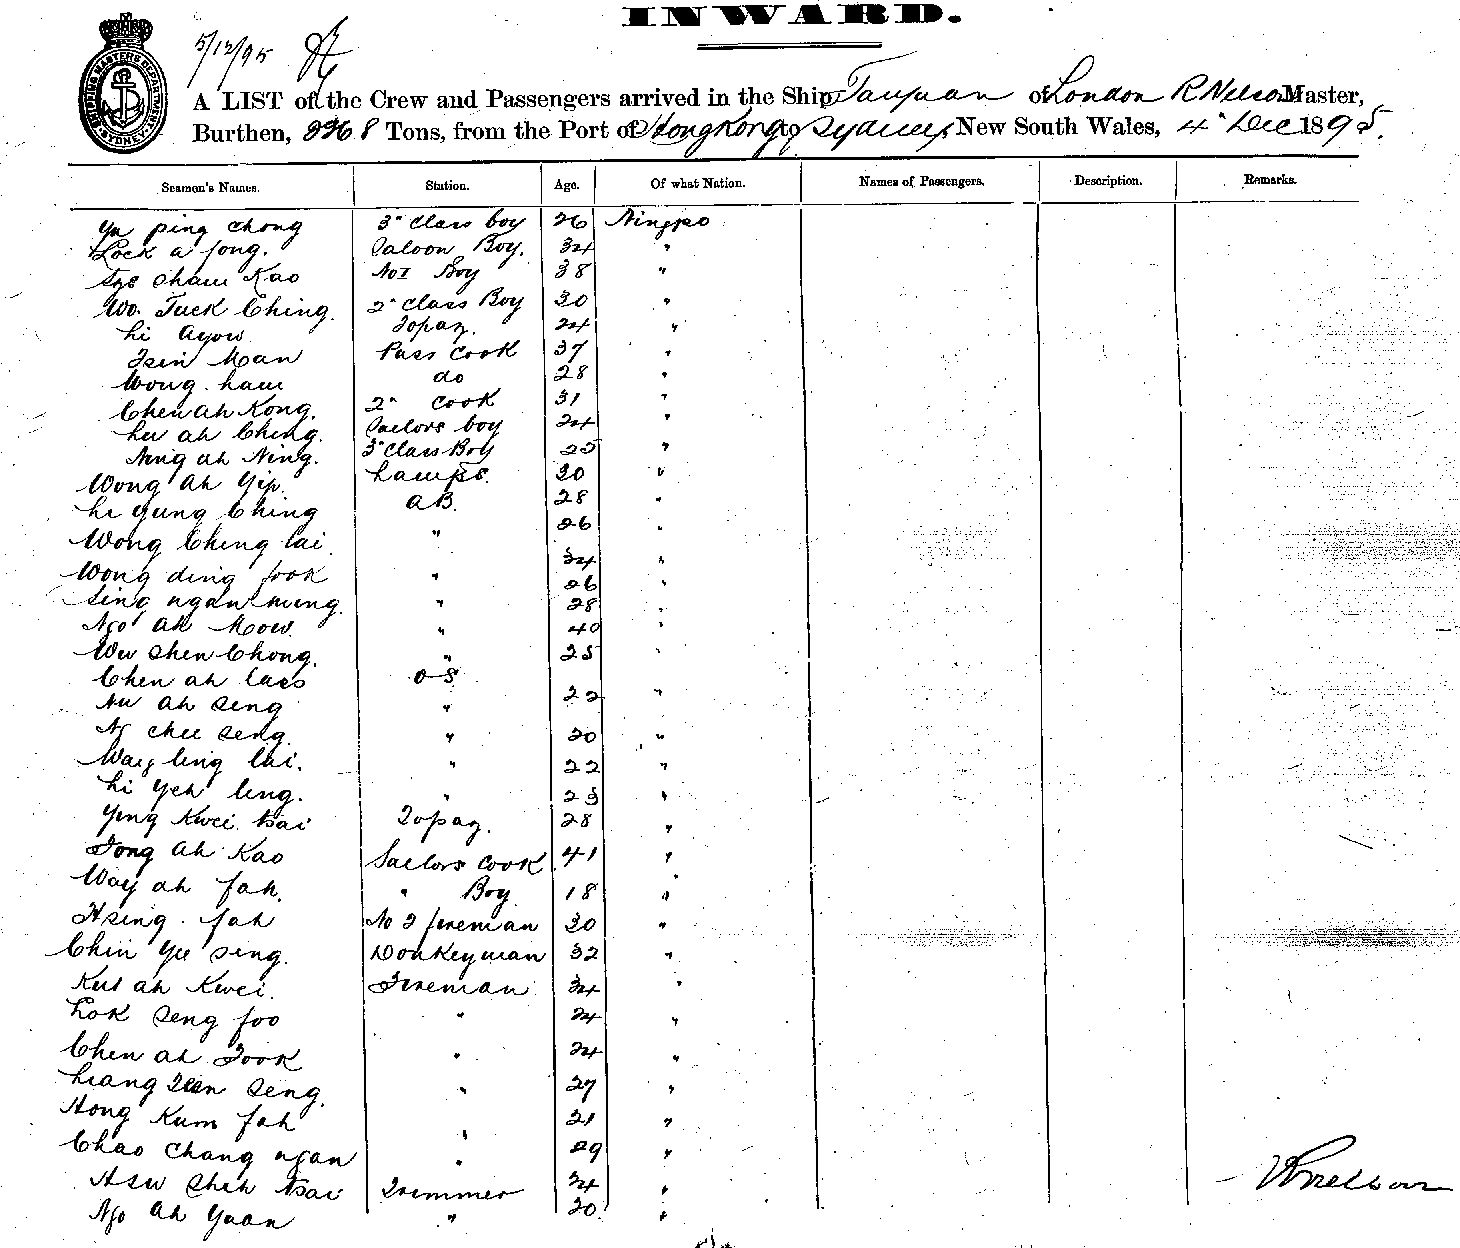 INWARD.
5/12/95
A LIST of the Crew and Passengers arrived in the Ship Taiyuan of London R Nelson Master,
Burthen, 2268 Tons, from the Port of Hong Kong to Sydney, New South Wales, 4" Dec 1895.
Seamen's Names. Station. Age. Of what Nation. Names of Passengers. Description. Remarks.
Yu ping chong 3" Class boy 26 Ningpo
Lock a fong. Saloon Boy. 34 "
Sze cham Kao No I Boy 38 "
Wo. Tuck Ching. 2" Class Boy 30 "
Li Ayow Topaz. 24 "
Tsin Man Pass Cook 37 "
Wong. ham do 28 "
Chen ah Kong. 2" Cook 31 "
Lu ah Ching. Sailors boy 24 "
Ning ah Ning. 3" Class Boy 25 "
Wong Ah Yip. Lamps. 30 "
Li Yung Ching AB. 28 "
Wong Ching lai " 26 "
Wong ding fook " 34 "
Sing ngan ming. " 26 "
Ngo Ah Mow. " 28 "
Wu Shen Chong. " 40 "
Chen ah O.S. 25
Nu ah Seng " 22 "
Ng chee Seng. " 20 "
Way ling lai. " 22 "
Li Yeh ling. " 23 "
Ying Kwei tsai Topaz. 28 "
Tong Ah Kao Sailors Cook 41 "
Way ah fah. " Boy 18 "
Hsing. fah No 2 fireman 30 "
Chin Yu Sing. Donkeyman 32 "
Kut ah Kwei. Fireman 34 "
Lok Seng foo " 24 "
Chen ah Fook " 24 "
Liang Seng. " 27 "
Hong Kum fah " 21 "
Chao Chang ngan " 29 "
Hsu Sheh tsai Trimmer 24 "
Ngo Ah Yuan " 20 "
R Nelson